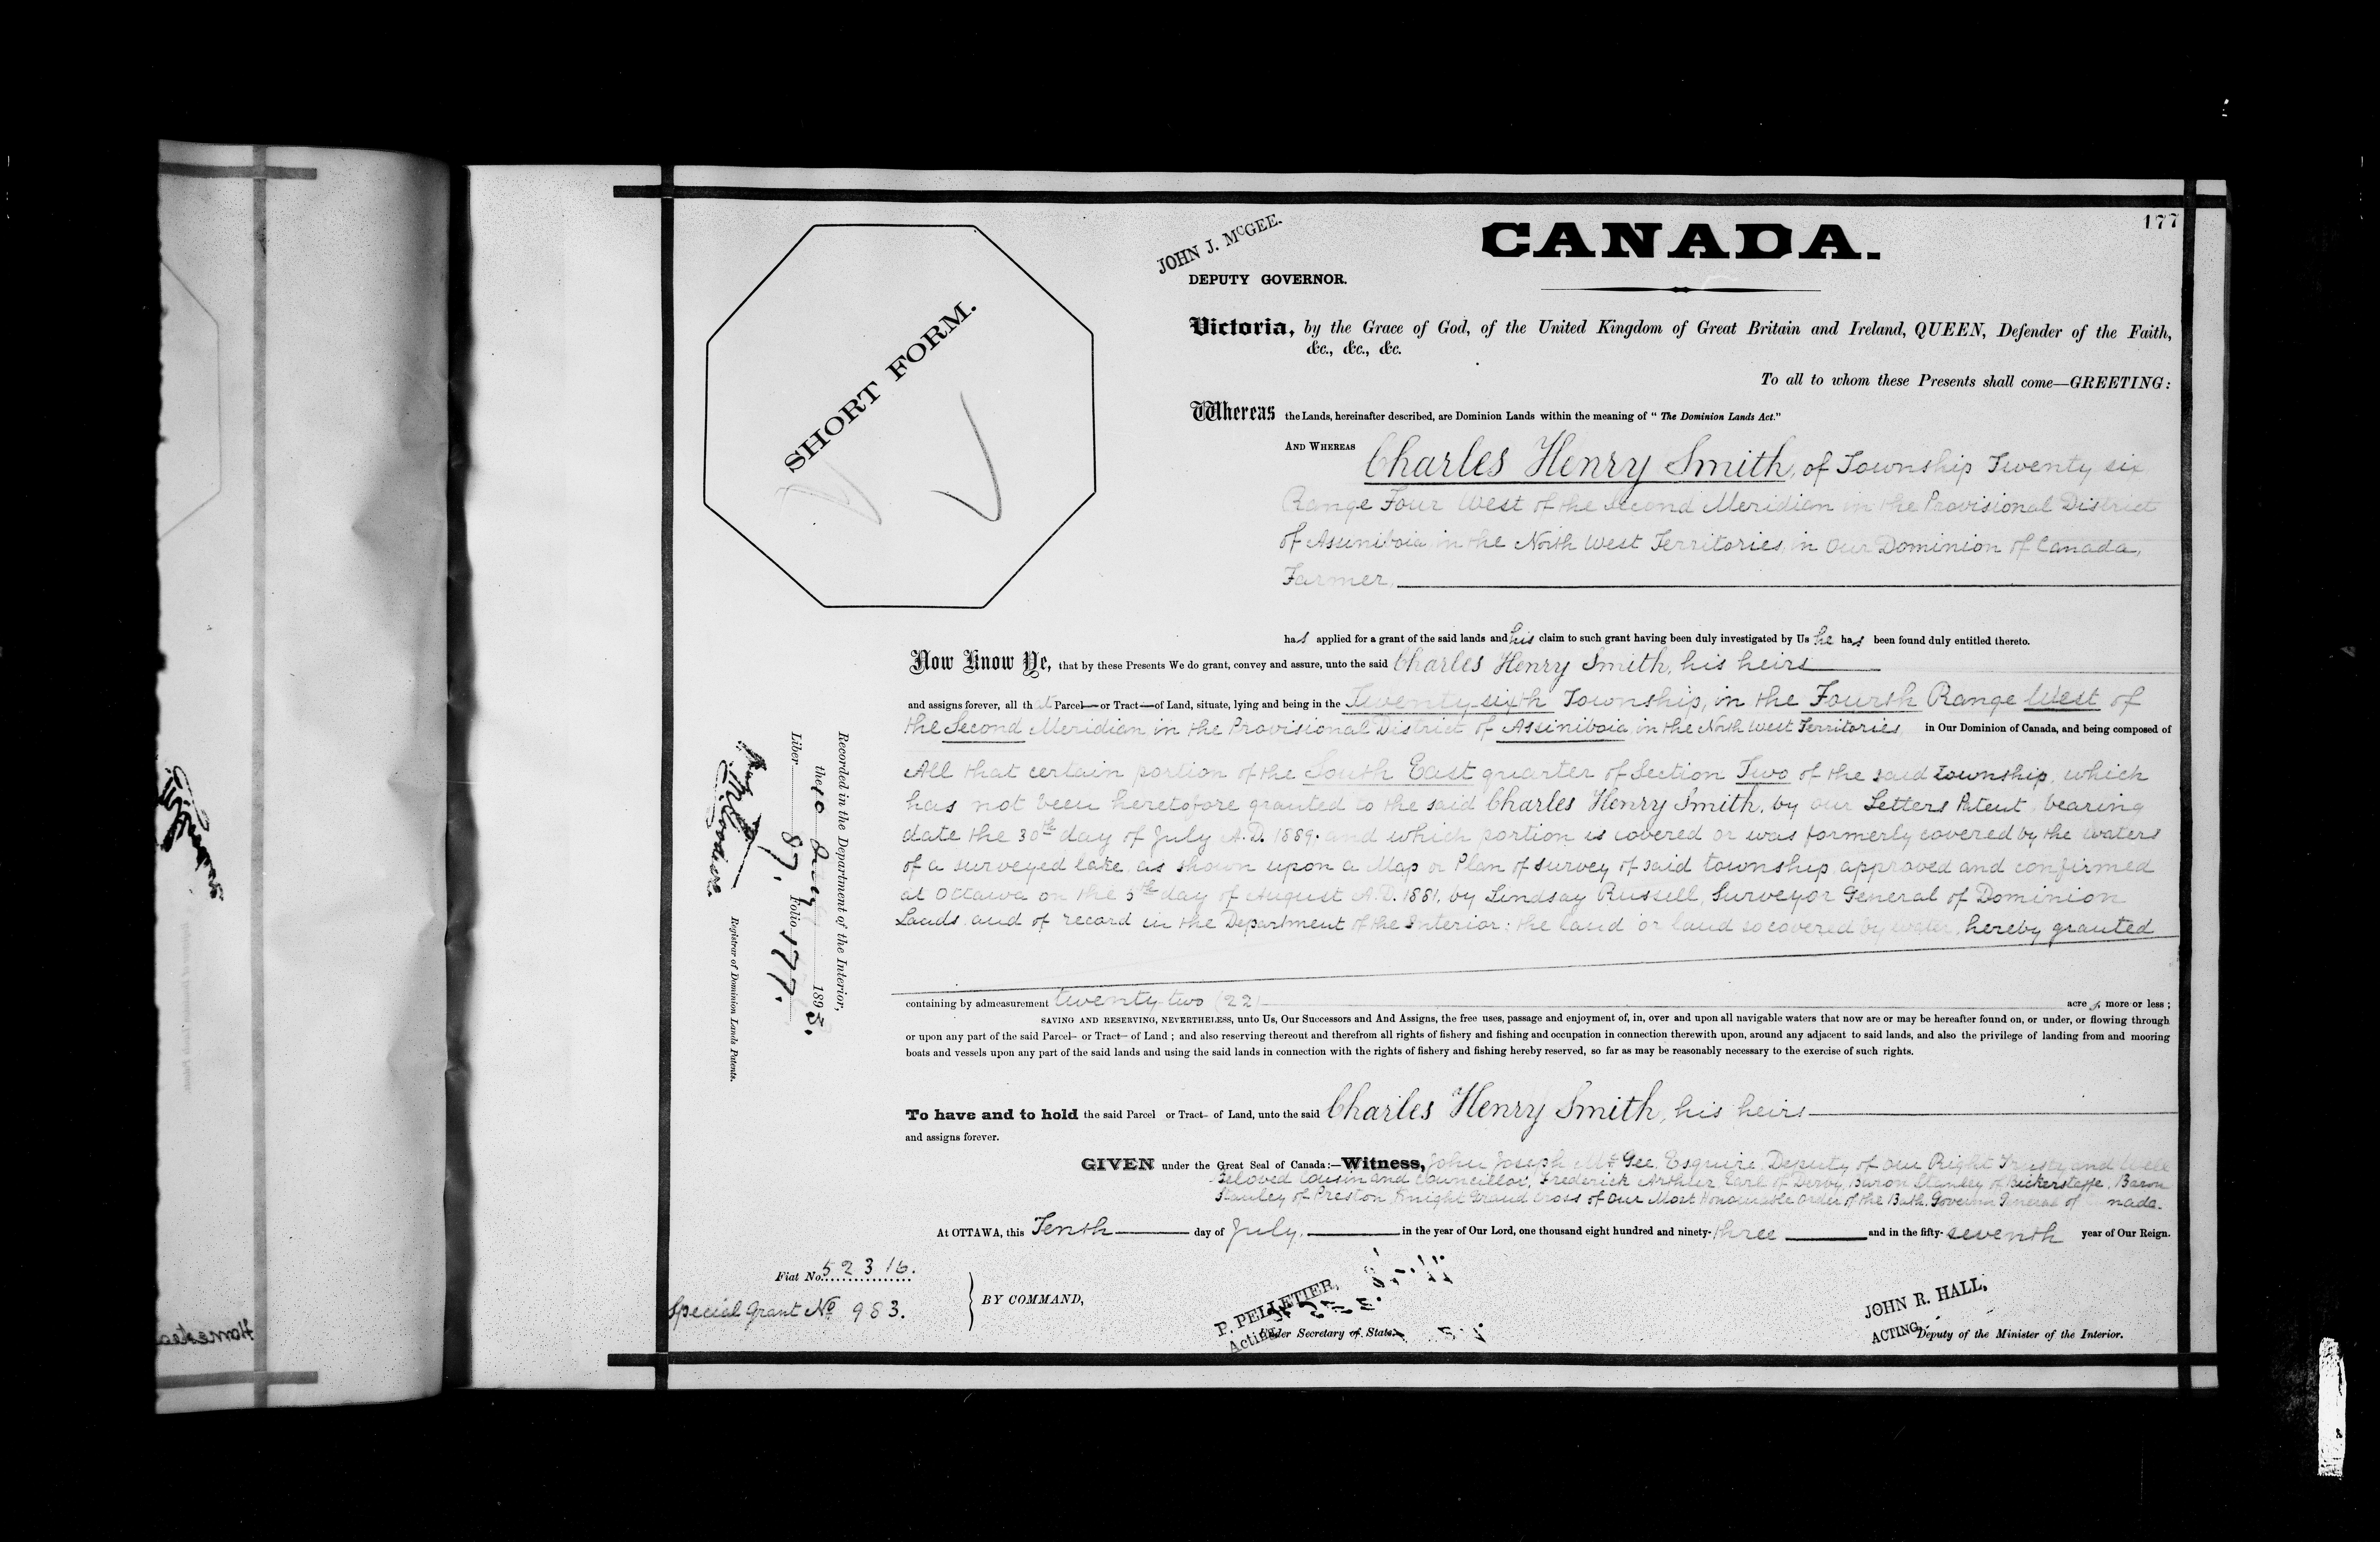 177
CANADA.
JOHN J. McGEE.
DEPUTY GOVERNOR.
SHORT FORM.
Victoria, by the Grace of God, of the United Kingdom of Great Britain and Ireland, QUEEN, Defender of the Faith,
&c., &c., &c.
To all to whom these Presents shall come—GREETING:
Whereas the Lands, hereinafter described, are Dominion Lands within the meaning of "The Dominion Lands Act."
AND WHEREAS Charles Henry Smith, of Township Twenty six
Range Four West of the Second Meridian in the Provisional District
of Assiniboia in the North West Territories, in Our Dominion of Canada,
Farmer,
has applied for a grant of the said lands and his claim to such grant having been duly investigated by Us he has been found duly entitled thereto.
Now Know Ye, that by these Presents We do grant, convey and assure, unto the said Charles Henry Smith, his heirs
and assigns forever, all that Parcel—or Tract—of Land, situate, lying and being in the Twenty-sixth Township, in the Fourth Range West of
the Second Meridian in the Provisional District of Assiniboia in the North West Territories, in Our Dominion of Canada, and being composed of
All that certain portion of the South East quarter of Section Two of the said township, which
has not been heretofore granted to the said Charles Henry Smith, by our Letters Patent, bearing
date the 30th day of July A.D. 1889; and which portion is covered or was formerly covered by the waters
of a surveyed lake as shown upon a Map or Plan of survey of said township approved and confirmed
at Ottawa on the 5th day of August A.D. 1881, by Lindsay Russell, Surveyor General of Dominion
Lands and of record in the Department of the Interior: the land or land so covered by water, hereby granted
containing by admeasurement twenty two (22) acres, more or less;
SAVING AND RESERVING, NEVERTHELESS, unto Us, Our Successors and And Assigns, the free uses, passage and enjoyment of, in, over and upon all navigable waters that now are or may be hereafter found on, or under, or flowing through
or upon any part of the said Parcel— or Tract— of Land; and also reserving thereout and therefrom all rights of fishery and fishing and occupation in connection therewith upon, around any adjacent to said lands, and also the privilege of landing from and mooring
boats and vessels upon any part of the said lands and using the said lands in connection with the rights of fishery and fishing hereby reserved, so far as may be reasonably necessary to the exercise of such rights.
To have and to hold the said Parcel or Tract— of Land, unto the said Charles Henry Smith, his heirs
and assigns forever.
GIVEN under the Great Seal of Canada:—Witness, John Joseph McGee, Esquire, Deputy of Our Right Trusty and Well
Beloved Cousin and Councillor, Frederick Arthur, Earl of Derby, Baron Stanley of Bickerstaffe, Baron
Stanley of Preston, Knight Grand Cross of Our Most Honourable Order of the Bath, Governor General of nada.
At OTTAWA, this Tenth day of July, in the year of Our Lord, one thousand eight hundred and ninety-three and in the fifty-seventh year of Our Reign.
Fiat No. 52316.
Special Grant No. 983.
BY COMMAND,
P. PELLETIER,
Acting Under Secretary of State.
JOHN R. HALL,
ACTING Deputy of the Minister of the Interior.
Recorded in the Department of the Interior,
the 10 July 1893.
Liber 87. Folio 177.
Registrar of Dominion Lands Patents.
Homestea